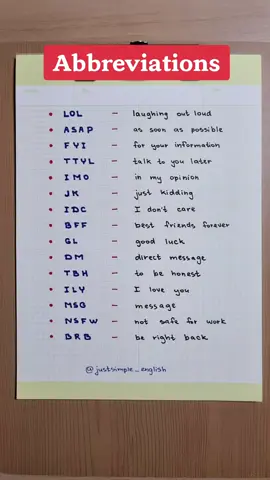 Abbreviations
• LOL – laughing out loud
• ASAP – as soon as possible
• FYI – for your information
• TTYL – talk to you later
• IMO – in my opinion
• JK – just kidding
• IDC – I don't care
• BFF – best friends forever
• GL – good luck
• DM – direct message
• TBH – to be honest
• ILY – I love you
• MSG – message
• NSFW – not safe for work
• BRB – be right back
@justsimple_english